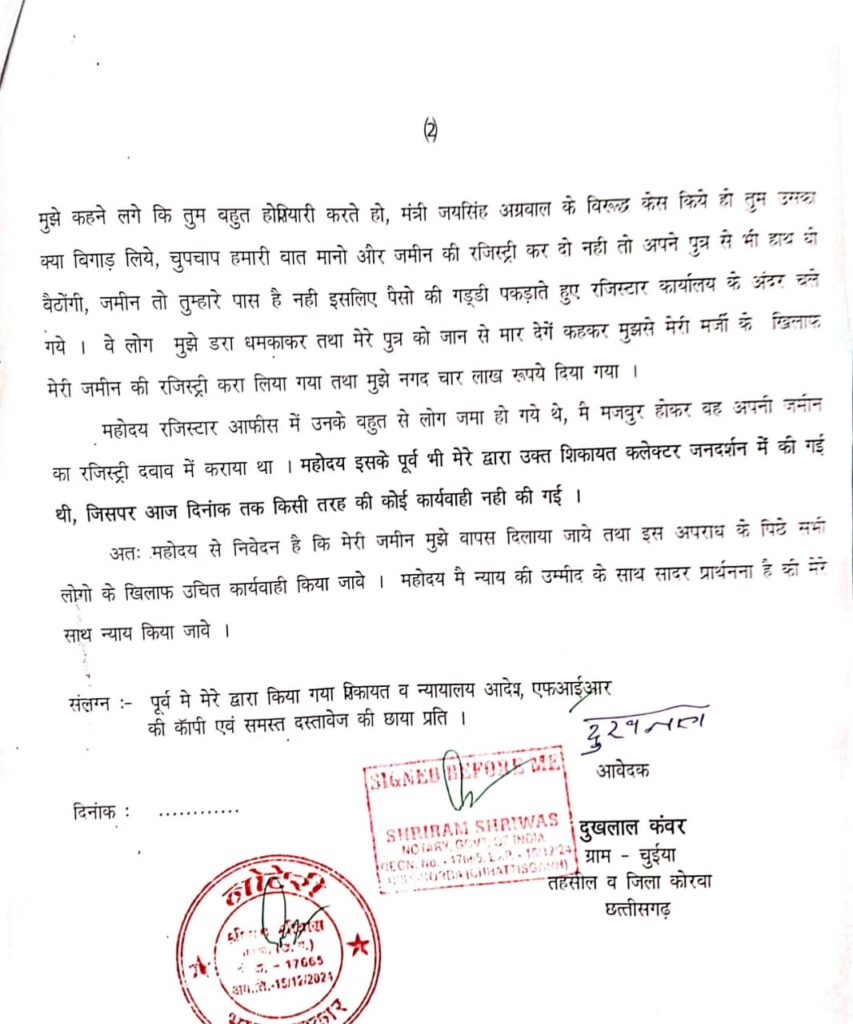 (2)
मुझे कहने लगे कि तुम बहुत होशियारी करते हो, मंत्री जयसिंह अग्रवाल के विरूद्ध केस किये हो तुम उसका
क्या बिगाड़ लिये, चुपचाप हमारी बात मानो और जमीन की रजिस्ट्री कर दो नही तो अपने पुत्र से भी हाथ धो
बैठोंगी, जमीन तो तुम्हारे पास है नही इसलिए पैसो की गड्डी पकड़ाते हुए रजिस्टार कार्यालय के अंदर चले
गये । वे लोग मुझे डरा धमकाकर तथा मेरे पुत्र को जान से मार देगें कहकर मुझसे मेरी मर्जी के खिलाफ
मेरी जमीन की रजिस्ट्री करा लिया गया तथा मुझे नगद चार लाख रूपये दिया गया ।
महोदय रजिस्टार आफीस में उनके बहुत से लोग जमा हो गये थे, मै मजबुर होकर वह अपनी जमीन
का रजिस्ट्री दवाव में कराया था । महोदय इसके पूर्व भी मेरे द्वारा उक्त शिकायत कलेक्टर जनदर्शन में की गई
थी, जिसपर आज दिनांक तक किसी तरह की कोई कार्यवाही नही की गई ।
अतः महोदय से निवेदन है कि मेरी जमीन मुझे वापस दिलाया जाये तथा इस अपराध के पिछे सभी
लोगो के खिलाफ उचित कार्यवाही किया जावे । महोदय मै न्याय की उम्मीद के साथ सादर प्रार्थनना है की मेरे
साथ न्याय किया जावे ।
संलग्न :- पूर्व मे मेरे द्वारा किया गया शिकायत व न्यायालय आदेश, एफआईआर
की कॅापी एवं समस्त दस्तावेज की छाया प्रति ।
दुखलाल
आवेदक
दिनांक : ............
SIGNED BEFORE ME
SHRIRAM SHRIWAS
NOTARY, GOVT. OF INDIA
REGN. No. - 17665, EXP. - 15/12/24
DIST. KORBA (CHHATTISGARH)
दुखलाल कंवर
ग्राम - चुईया
तहसील व जिला कोरबा
छत्तीसगढ़
नोटेरी
- 17665
15/12/2024